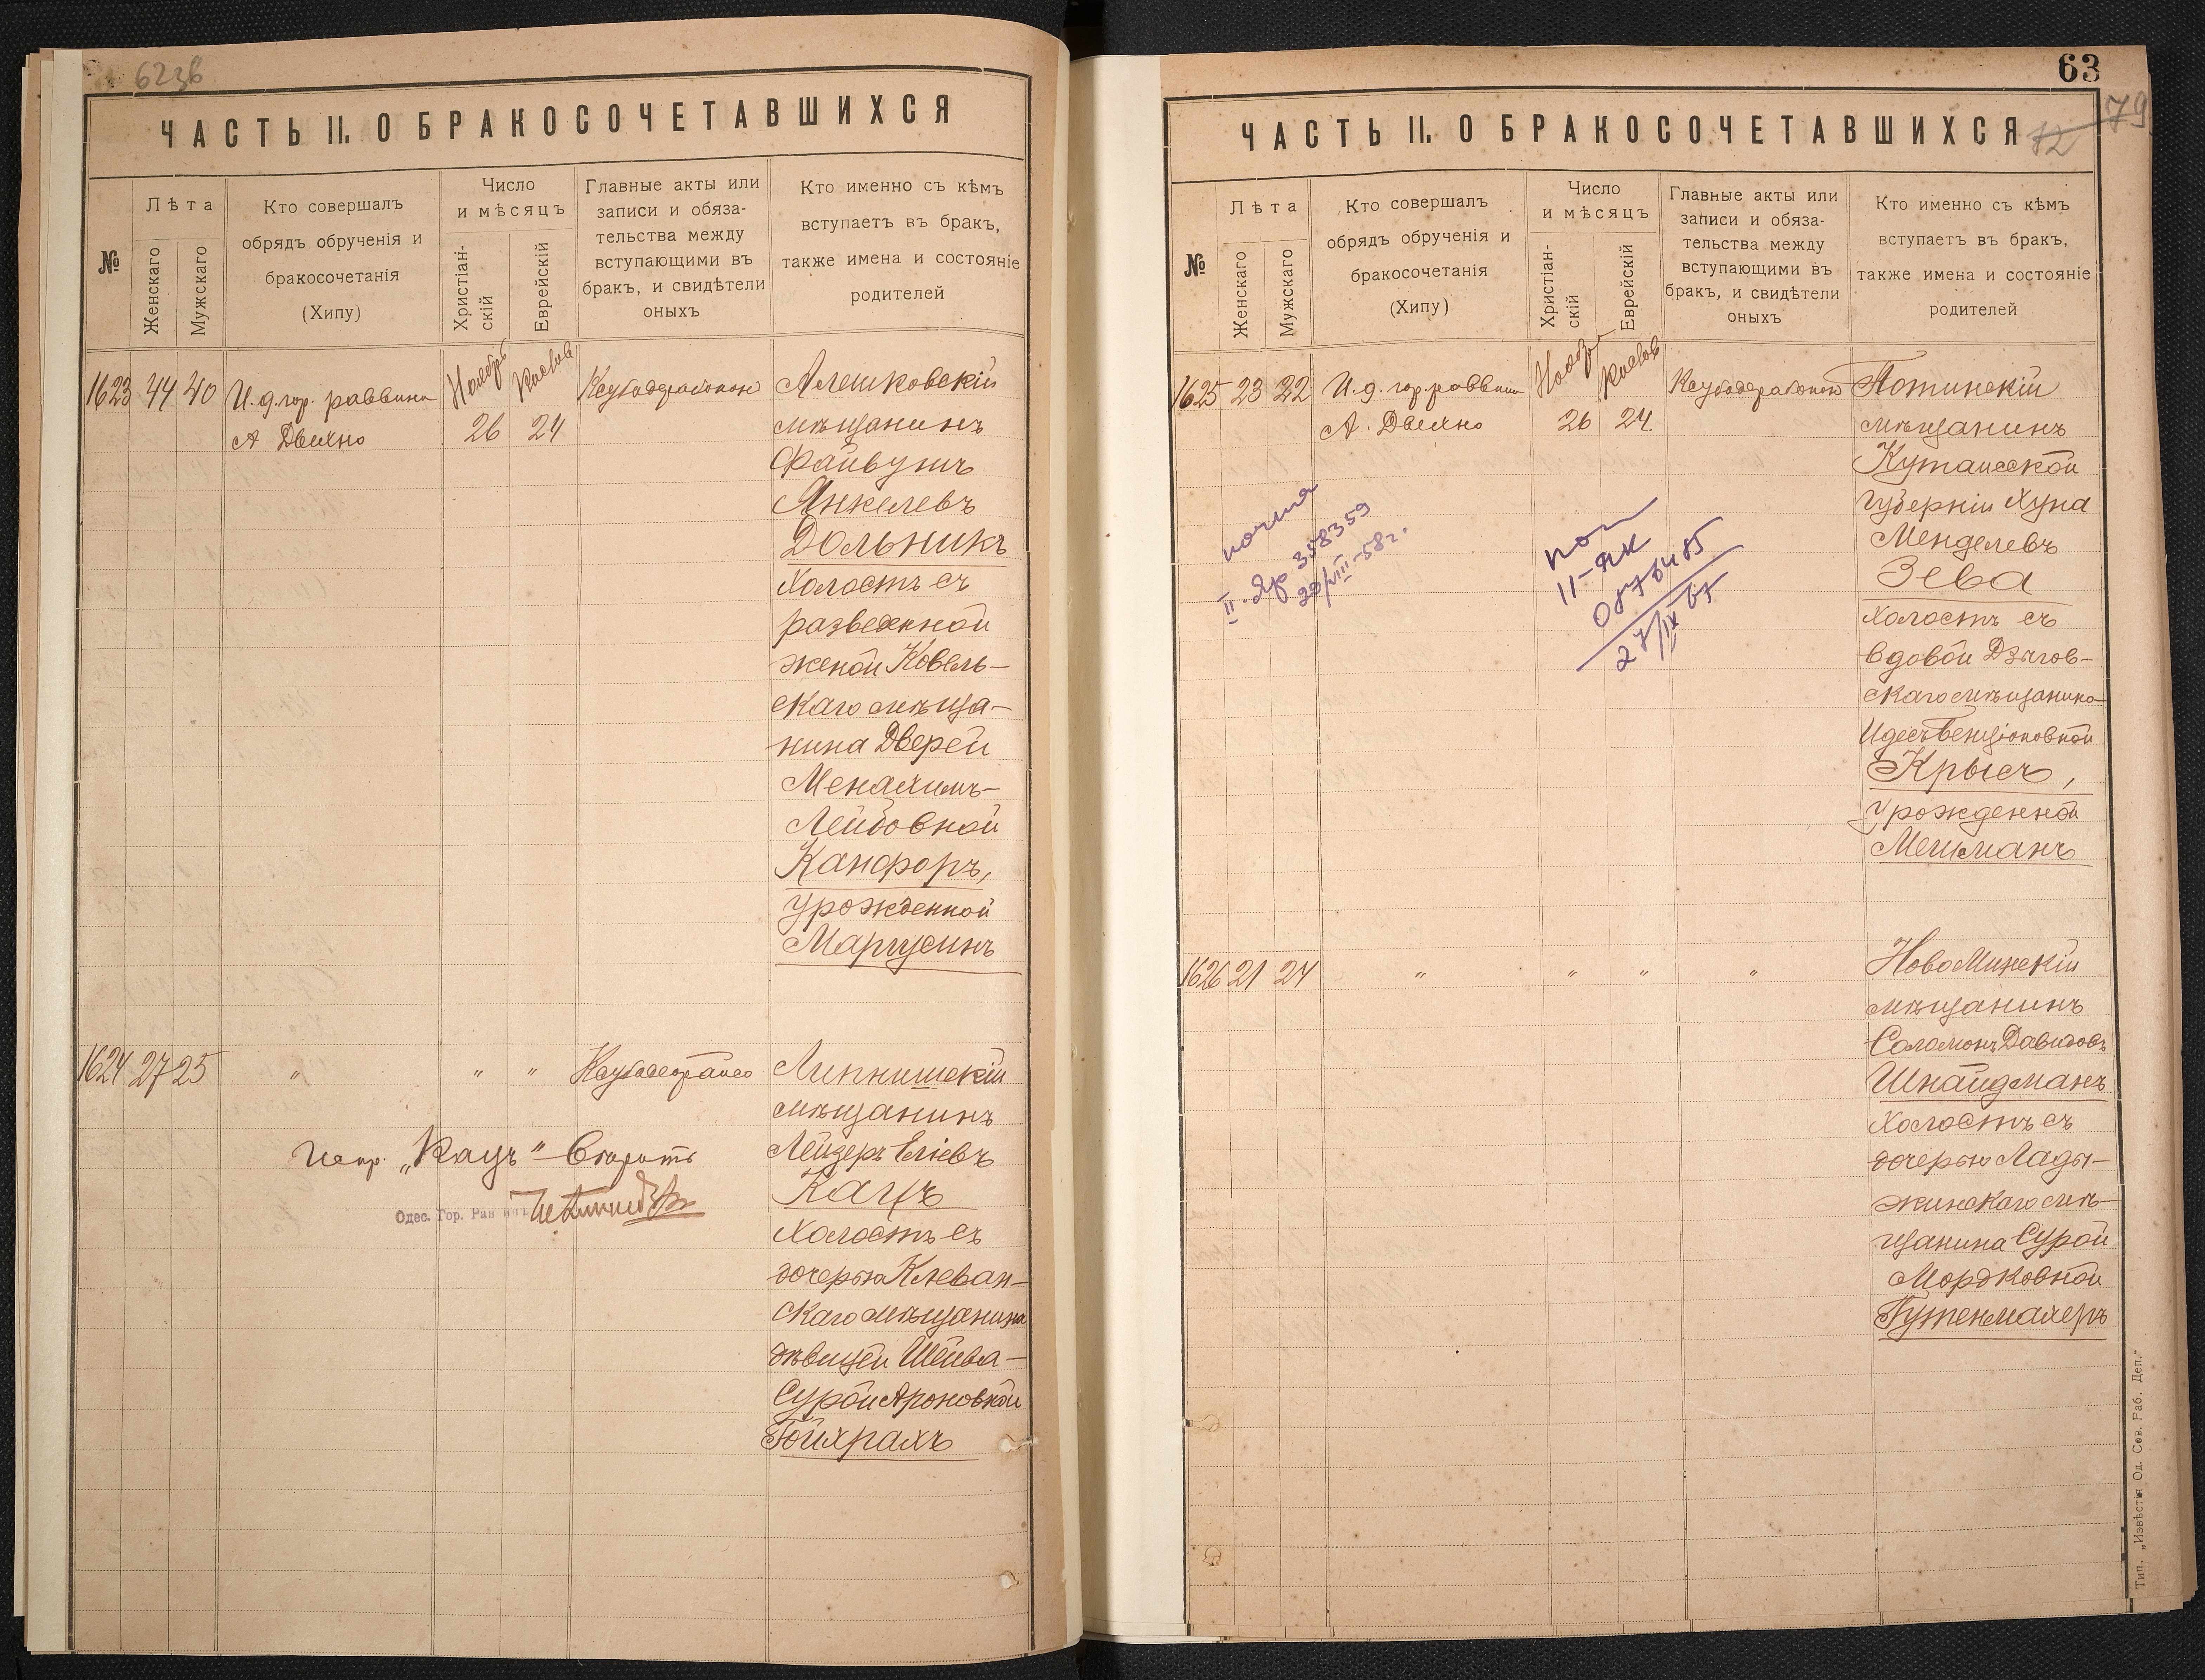 623б
ЧАСТЬ II. О БРАКОСОЧЕТАВШИХСЯ
№
Лѣта
Женскаго
Мужскаго
Кто совершалъ
обрядъ обрученія и
бракосочетанія
(Хипу)
Число
и мѣсяцъ
Христіан-
скій
Еврейскій
Главные акты или
записи и обяза-
тельства между
вступающими въ
бракъ, и свидѣтели
оныхъ
Кто именно съ кѣмъ
вступаетъ въ бракъ,
также имена и состояніе
родителей
1623 44 40 И.д. гор. раввина
А Двейно
Ноябрь
26
Кислев
24
Алешковскій
мѣщанинъ
Файвушъ
Янкелевъ
Дольникъ
холостъ съ
разведенной
женой Ковель-
скаго мѣща-
нина Двейрей
Менахимъ-
Лейбовной
Канфоръ,
урожденной
Маргусинъ
1624 27 25 " " "
Липнишскій
мѣщанинъ
Лейзеръ Еліевъ
Кацъ
холостъ съ
дочерью Клеван-
скаго мѣщанина
дѣвицей Шейва-
Сурой Ароновной
Гойхрахъ
Испр. „Кацъ"
Одес. Гор. Раввинъ
63
79
12
ЧАСТЬ II. О БРАКОСОЧЕТАВШИХСЯ
№
Лѣта
Женскаго
Мужскаго
Кто совершалъ
обрядъ обрученія и
бракосочетанія
(Хипу)
Число
и мѣсяцъ
Христіан-
скій
Еврейскій
Главные акты или
записи и обяза-
тельства между
вступающими въ
бракъ, и свидѣтели
оныхъ
Кто именно съ кѣмъ
вступаетъ въ бракъ,
также имена и состояніе
родителей
1625 23 32 И.д. гор. раввина
А. Двейно
Ноября
26
Кислев
24
Потинскій
мѣщанинъ
Кутаисской
губерніи Хуна
Менделевъ
Зева
холостъ съ
вдовой Дзыгов-
скаго мѣщанина
Идесъ Бенціоновной
Крысъ,
урожденной
Мешманъ
358359
29/VIII-58г.
II-ЯК
0876485
27/IX 67
1626 21 24 " " " "
НовоМинскій
мѣщанинъ
Соломонъ Давидовъ
Шнайдманъ
холостъ съ
дочерью Лады-
жинскаго мѣ-
щанина Сурой
Мордковной
Гутенмахеръ
Тип. „Извѣстія Од. Сов. Раб. Деп."